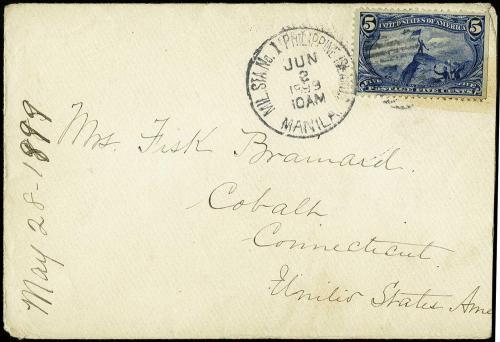 5 UNITED STATES OF AMERICA 5
POSTAGE FIVE CENTS
MIL. STA. No. 1 PHILIPPINE
JUN
1899
10AM
MANILA
May 28-1899
Mrs. Fisk Brainard.
Cobalt
Connecticut.
United States Ame